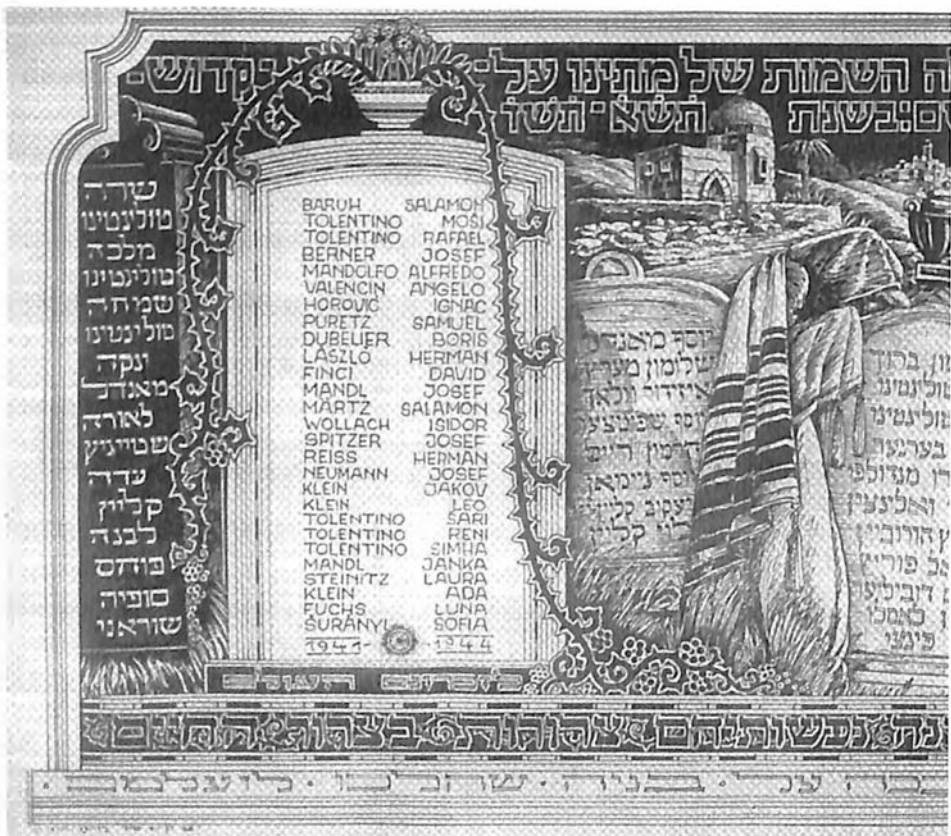 ה השמות של מתינו על־ קדוש־
ם: בשנת תש״א־תש״ד
שרה
טולינטינו
מלכה
טולינטינו
שמחה
טולינטינו
ינקה
מאנדל
לאורה
שטייניץ
עדה
קליין
לבנה
פוחס
סופיה
שוראני
BARUH SALAMON
TOLENTINO MOŠI
TOLENTINO RAFAEL
BERNER JOSEF
MANDOLFO ALFREDO
VALENCIN ANGELO
HOROVIĆ IGNAC
PURETZ SAMUEL
DUBELIER BORIS
LÁSZLÓ HERMAN
FINCI DAVID
MANDL JOSEF
MÄRTZ SALAMON
WOLLACH ISIDOR
SPITZER JOSEF
REISS HERMAN
NEUMANN JOSEF
KLEIN JAKOV
KLEIN LEO
TOLENTINO SARI
TOLENTINO RENI
TOLENTINO SIMHA
MANDL JANKA
STEINITZ LAURA
KLEIN ADA
FUCHS LUNA
ŠURÁNYI SOFIA
1941-1944
יוסף מאנדל
שלימון מערץ
איזידור וולאך
יוסף שפיטצער
הרמן רייס
יוסף ניימאן
יעקוב קליין
קליין
ון ברוך
ולינטינו
ולינטינו
בערנער
ין מנדולפי
ואלינצין
הורוביץ
אל פוריץ
לאסלו
פינצי
העולם
נה נפשותיהם צרורות בצרור החיים
כה על בניה שהלכו